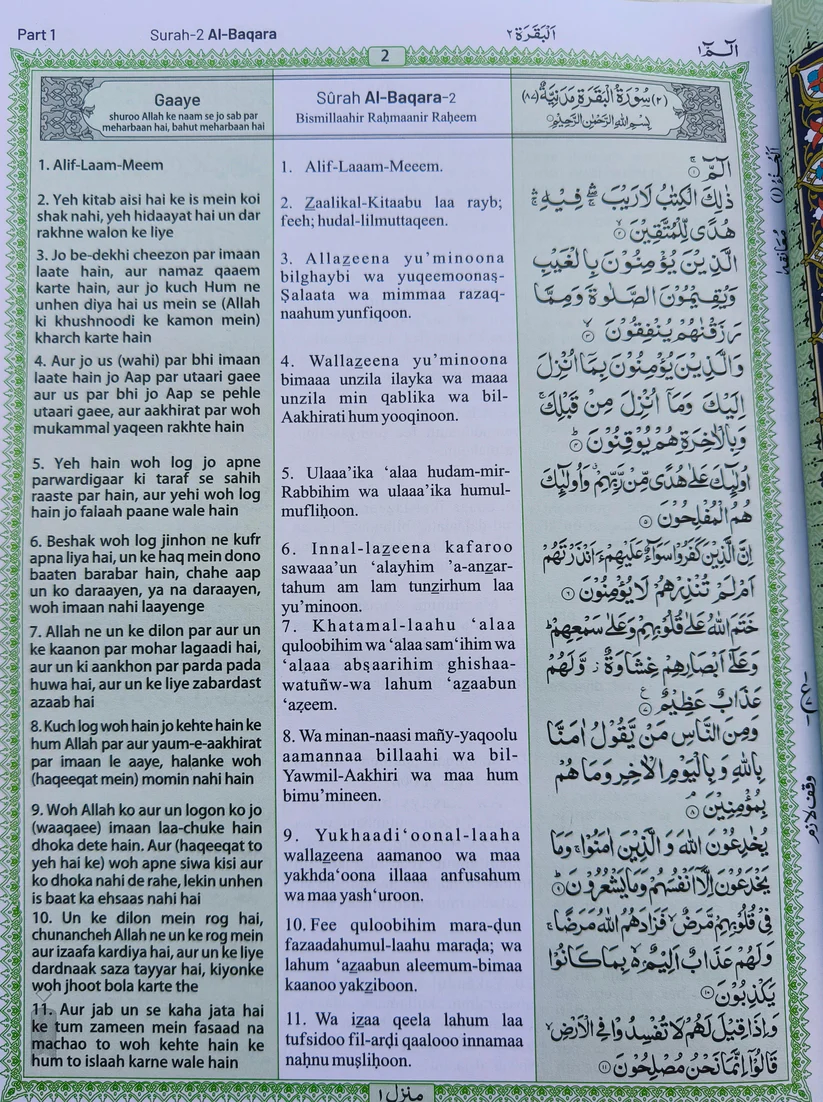 Part 1
Surah-2 Al-Baqara
اَلْبَقَرَة ٢
الٓمّٓ ١
2
Gaaye
shuroo Allah ke naam se jo sab par
meharbaan hai, bahut meharbaan hai
1. Alif-Laam-Meem
2. Yeh kitab aisi hai ke is mein koi
shak nahi, yeh hidaayat hai un dar
rakhne walon ke liye
3. Jo be-dekhi cheezon par imaan
laate hain, aur namaz qaaem
karte hain, aur jo kuch Hum ne
unhen diya hai us mein se (Allah
ki khushnoodi ke kamon mein)
kharch karte hain
4. Aur jo us (wahi) par bhi imaan
laate hain jo Aap par utaari gaee
aur us par bhi jo Aap se pehle
utaari gaee, aur aakhirat par woh
mukammal yaqeen rakhte hain
5. Yeh hain woh log jo apne
parwardigaar ki taraf se sahih
raaste par hain, aur yehi woh log
hain jo falaah paane wale hain
6. Beshak woh log jinhon ne kufr
apna liya hai, un ke haq mein dono
baaten barabar hain, chahe aap
un ko daraayen, ya na daraayen,
woh imaan nahi laayenge
7. Allah ne un ke dilon par aur un
ke kaanon par mohar lagaadi hai,
aur un ki aankhon par parda pada
huwa hai, aur un ke liye zabardast
azaab hai
8. Kuch log woh hain jo kehte hain ke
hum Allah par aur yaum-e-aakhirat
par imaan le aaye, halanke woh
(haqeeqat mein) momin nahi hain
9. Woh Allah ko aur un logon ko jo
(waaqaee) imaan laa-chuke hain
dhoka dete hain. Aur (haqeeqat to
yeh hai ke) woh apne siwa kisi aur
ko dhoka nahi de rahe, lekin unhen
is baat ka ehsaas nahi hai
10. Un ke dilon mein rog hai,
chunancheh Allah ne un ke rog mein
aur izaafa kardiya hai, aur un ke liye
dardnaak saza tayyar hai, kiyonke
woh jhoot bola karte the
11. Aur jab un se kaha jata hai
ke tum zameen mein fasaad na
machao to woh kehte hain ke
hum to islaah karne wale hain
Sûrah Al-Baqara-2
Bismillaahir Raḥmaanir Raḥeem
1. Alif-Laaam-Meeem.
2. Z̲aalikal-Kitaabu laa rayb;
feeh; hudal-lilmuttaqeen.
3. Allaz̲eena yu’minoona
bilghaybi wa yuqeemoonaṣ-
Ṣalaata wa mimmaa razaq-
naahum yunfiqoon.
4. Wallaz̲eena yu’minoona
bimaaa unzila ilayka wa maaa
unzila min qablika wa bil-
Aakhirati hum yooqinoon.
5. Ulaaa’ika ‘alaa hudam-mir-
Rabbihim wa ulaaa’ika humul-
mufliḥoon.
6. Innal-laz̲eena kafaroo
sawaaa’un ‘alayhim ’a-anz̲ar-
tahum am lam tunz̲irhum laa
yu’minoon.
7. Khatamal-laahu ‘alaa
quloobihim wa ‘alaa sam‘ihim wa
‘alaaa abṣaarihim ghishaa-
watuñw-wa lahum ‘az̲aabun
‘aẓeem.
8. Wa minan-naasi mañy-yaqoolu
aamannaa billaahi wa bil-
Yawmil-Aakhiri wa maa hum
bimu’mineen.
9. Yukhaadi‘oonal-laaha
wallaz̲eena aamanoo wa maa
yakhda‘oona illaaa anfusahum
wa maa yash‘uroon.
10. Fee quloobihim mara-ḍun
fazaadahumul-laahu maraḍa; wa
lahum ‘az̲aabun aleemum-bimaa
kaanoo yakz̲iboon.
11. Wa iz̲aa qeela lahum laa
tufsidoo fil-arḍi qaalooo innamaa
naḥnu muṣliḥoon.
(٢) سُوْرَةُ الْبَقَرَةِ مَدَنِيَّةٌ (٨٧)
بِسْمِ اللهِ الرَّحْمٰنِ الرَّحِيْمِ
الٓمّٓ ۚ ١
ذٰلِكَ الْكِتٰبُ لَا رَيْبَ ۛ فِيْهِ ۛ
هُدًى لِّلْمُتَّقِيْنَ ۙ ٢
الَّذِيْنَ يُؤْمِنُوْنَ بِالْغَيْبِ
وَيُقِيْمُوْنَ الصَّلٰوةَ وَمِمَّا
رَزَقْنٰهُمْ يُنْفِقُوْنَ ۙ ٣
وَالَّذِيْنَ يُؤْمِنُوْنَ بِمَآ اُنْزِلَ
اِلَيْكَ وَمَآ اُنْزِلَ مِنْ قَبْلِكَ ۚ
وَبِالْاٰخِرَةِ هُمْ يُوْقِنُوْنَ ؕ ٤
اُولٰٓئِكَ عَلٰى هُدًى مِّنْ رَّبِّهِمْ ۗ وَاُولٰٓئِكَ
هُمُ الْمُفْلِحُوْنَ ٥
اِنَّ الَّذِيْنَ كَفَرُوْا سَوَآءٌ عَلَيْهِمْ ءَاَنْذَرْتَهُمْ
اَمْ لَمْ تُنْذِرْهُمْ لَا يُؤْمِنُوْنَ ٦
خَتَمَ اللهُ عَلٰى قُلُوْبِهِمْ وَعَلٰى سَمْعِهِمْ ؕ
وَعَلٰٓى اَبْصَارِهِمْ غِشَاوَةٌ ۫ وَّلَهُمْ
عَذَابٌ عَظِيْمٌ ٧
وَمِنَ النَّاسِ مَنْ يَّقُوْلُ اٰمَنَّا
بِاللهِ وَبِالْيَوْمِ الْاٰخِرِ وَمَا هُمْ
بِمُؤْمِنِيْنَ ۘ ٨
يُخٰدِعُوْنَ اللهَ وَالَّذِيْنَ اٰمَنُوْا ۚ وَمَا
يَخْدَعُوْنَ اِلَّآ اَنْفُسَهُمْ وَمَا يَشْعُرُوْنَ ؕ ٩
فِيْ قُلُوْبِهِمْ مَّرَضٌ ۙ فَزَادَهُمُ اللهُ مَرَضًا ۚ
وَلَهُمْ عَذَابٌ اَلِيْمٌ ۢ ۙ بِمَا كَانُوْا
يَكْذِبُوْنَ ١٠
وَاِذَا قِيْلَ لَهُمْ لَا تُفْسِدُوْا فِي الْاَرْضِ ۙ
قَالُوْٓا اِنَّمَا نَحْنُ مُصْلِحُوْنَ ١١
وقف لازم
منزل ١